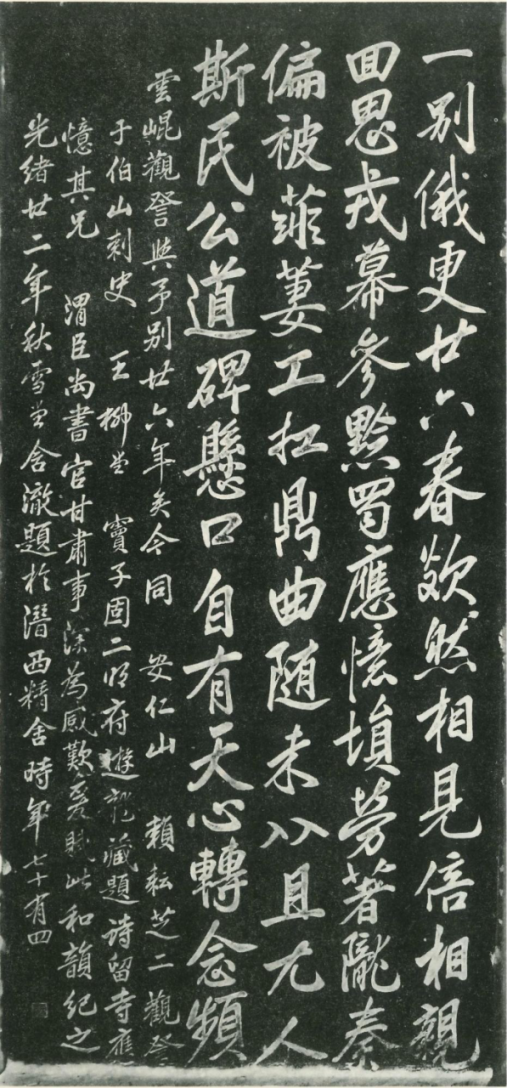 一別俄更廿六春欻然相見倍相親
回思戎幕參黔蜀應憶塤勞著隴秦
偏被萋工扛鼎曲随未八且尤人
斯民公道碑懸口自有天心轉念頻
雲崐觀詧與予別廿六年矣今同 安仁山 賴耘芝二觀詧
于伯山刺史 王柳堂 竇子固二明府遊龍藏題詩留寺應
憶其兄 渭臣尚書官甘肅事深為感歎爰賦此和韻紀之
光緒廿二年秋雪堂含澈題於潛西精舍時年七十有四